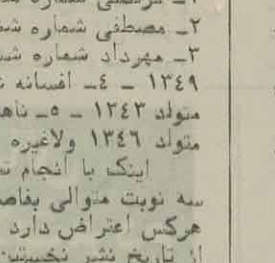 ۲ـ مصطفی شماره شد
۳ـ مهرداد شماره شد
۱۳۴۹ ـ ٤ـ افسانه
متولد ۱۳٤۳ ـ ٥ـ ناه
متولد ۱۳٤٦ ولاغیره
اینک با انجام
سه نوبت متوالی بفاص
هرکس اعتراض دارد
از تاریخ نشر نخستین